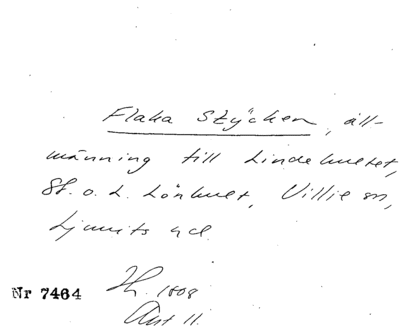 Flaka Stÿcken, all-
männing till Lindehultet,
St. o. L. Lönhult, Villie sn,
Ljunits hd.
Nr 7464
1808
Akt 11.